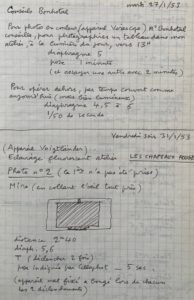 Conseils Bonhotal mardi 27/1/53
Pour photo en couleur (appareil Voisenge) Mr Bonhotal
conseille, pour photographier un tableau dans mon
atelier, à la lumière du jour, vers 13h
diaphragme 5
pose 1 minute
(et essayer une autre avec 2 minutes)
Pour opérer dehors, par temps couvert comme
aujourd'hui (mais bien lumineux)
diaphragme 4,5 à 6
1/50 de seconde
Vendredi soir 31/1/53
(Appareil Voigtlander)
Eclairage fluorescent atelier LES CHAPEAUX ROUGES
Photo n° 2 (la 1re n'a pas été prise)
Mire (en collant l'œil tout près)
distance 2m40
diaph. 5,6
T (déclencher 2 fois)
pose indiquée par 5 sec
(appareil mal fixé a bougé lors de chacun
les 2 déclenchements)